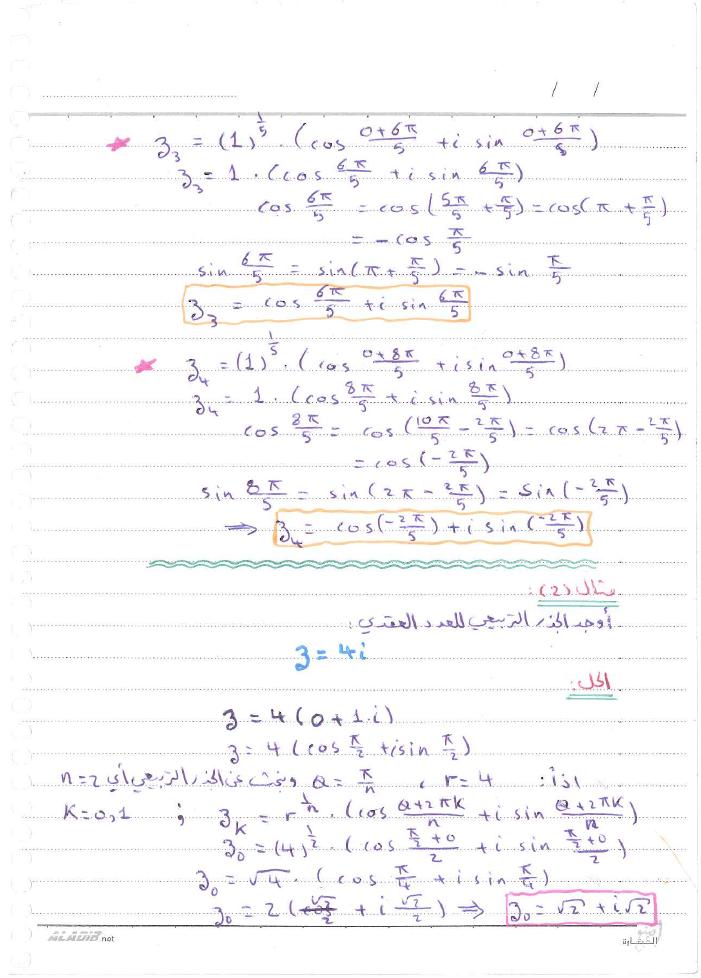 / /
z₃ = (1)^(1/5) . (cos (0+6π)/5 + i sin (0+6π)/5)
z₃ = 1 . (cos 6π/5 + i sin 6π/5)
cos 6π/5 = cos(5π/5 + π/5) = cos(π + π/5)
= - cos π/5
sin 6π/5 = sin(π + π/5) = - sin π/5
z₃ = cos 6π/5 + i sin 6π/5
z₄ = (1)^(1/5) . (cos (0+8π)/5 + i sin (0+8π)/5)
z₄ = 1 . (cos 8π/5 + i sin 8π/5)
cos 8π/5 = cos(10π/5 - 2π/5) = cos(2π - 2π/5)
= cos(-2π/5)
sin 8π/5 = sin(2π - 2π/5) = Sin(-2π/5)
⇒ z₄ = cos(-2π/5) + i sin(-2π/5)
مثال (2):
أوجد الجذر التربيعي للعدد العقدي:
z = 4i
الحل:
z = 4(0 + 1.i)
z = 4(cos π/2 + i sin π/2)
اذاً: r = 4 ، θ = π/n ونبحث عن الجذر التربيعي أي n = 2
z_K = r^(1/n) . (cos (θ+2πK)/n + i sin (θ+2πK)/n) ; K = 0,1
z₀ = (4)^(1/2) . (cos (π/2+0)/2 + i sin (π/2+0)/2)
z₀ = √4 . (cos π/4 + i sin π/4)
z₀ = 2(√2/2 + i √2/2) ⇒ z₀ = √2 + i√2
ALADIB.net